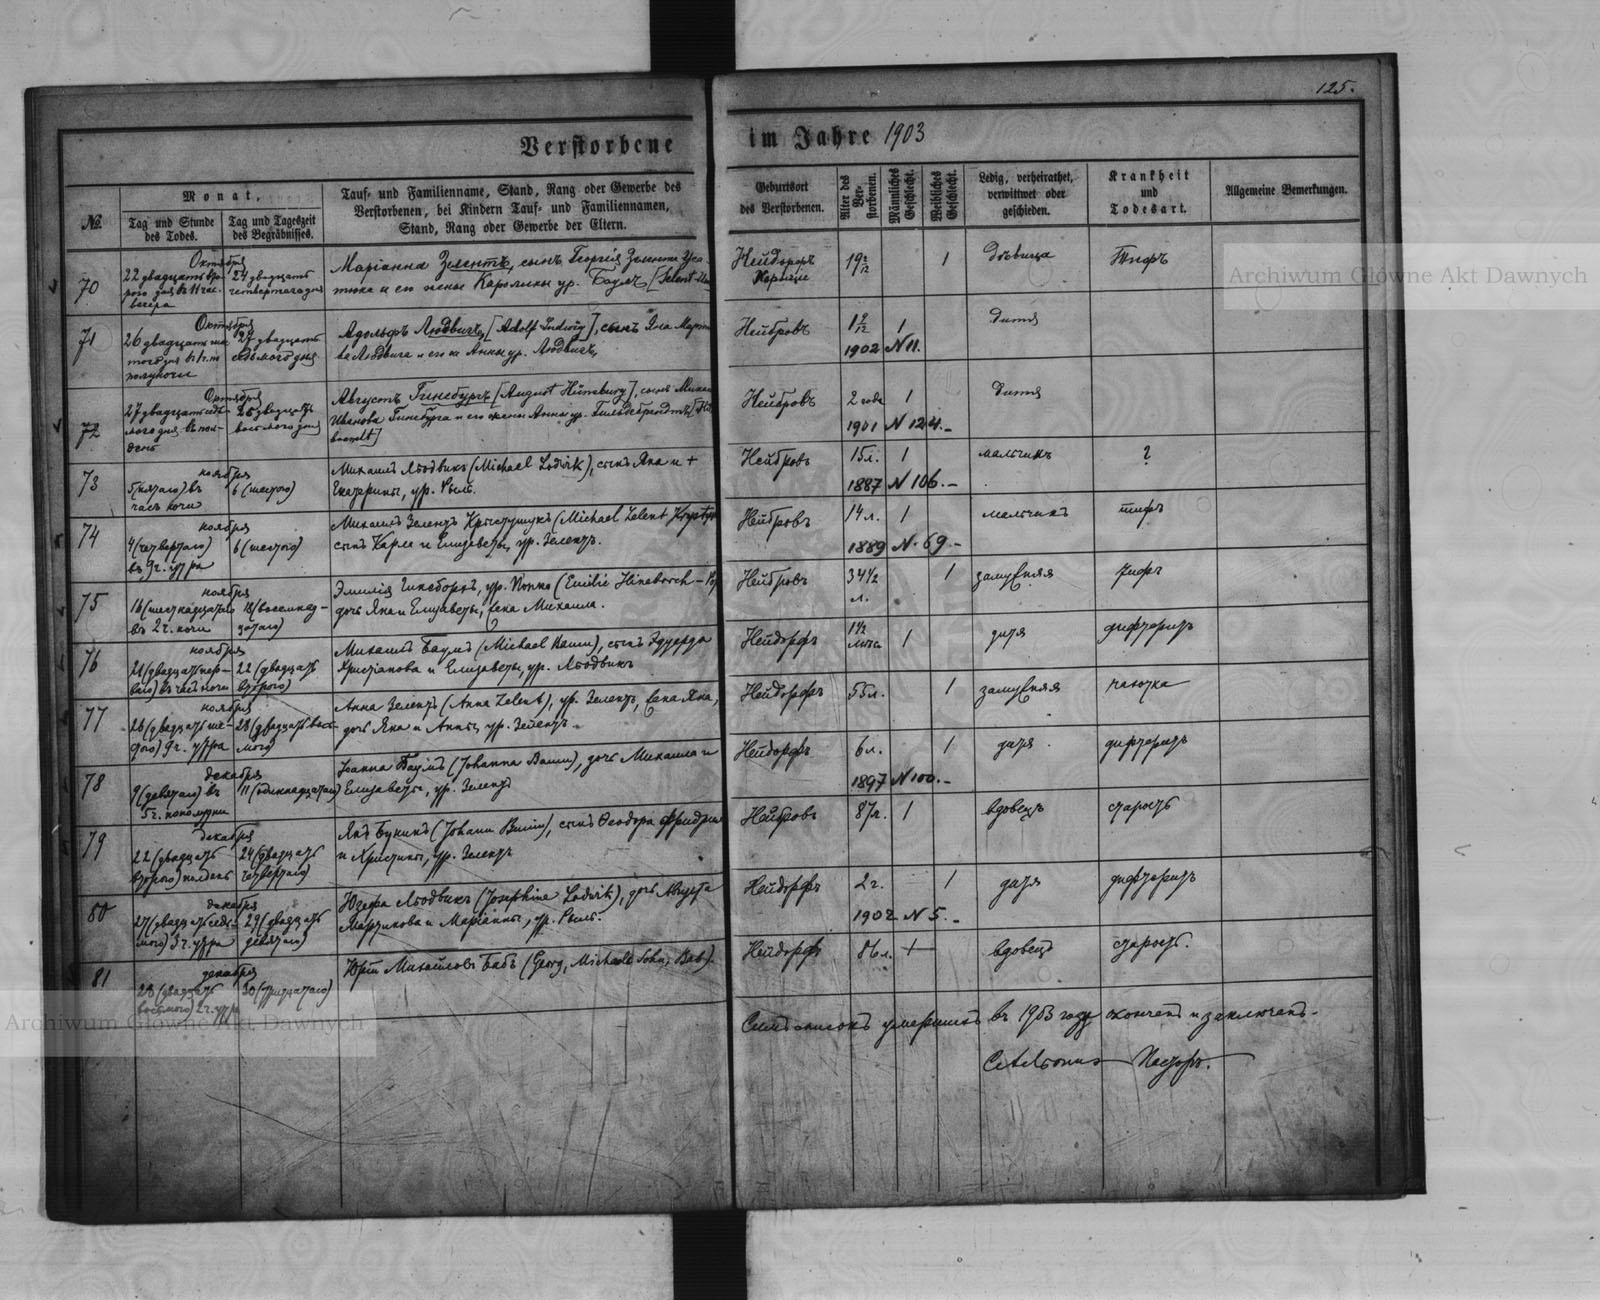 125.
Verstorbene im Jahre 1903
№.
Monat,
Tag und Stunde des Todes.
Tag und Tageszeit des Begräbnisses.
Tauf- und Familienname, Stand, Rang oder Gewerbe des
Verstorbenen, bei Kindern Tauf- und Familiennamen,
Stand, Rang oder Gewerbe der Eltern.
Geburtsort
des Verstorbenen.
Alter des Ver-
storbenen.
Männliches
Geschlecht.
Weibliches
Geschlecht.
Ledig, verheirathet,
verwittwet oder
geschieden.
Krankheit
und
Todesart.
Allgemeine Bemerkungen.
70
Октября
22 двадцать вто-
рого дня въ 11 час.
вечера
24 двадцать
четвертаго дня
Маріанна Зелентъ, сынъ Георгія
и его жены Каролины ур. Баумъ [Selent
Нейдорфъ
19 2/12
1
дѣвица
Тифъ
71
Октября
26 двадцать ше
полуночи
27 двадцать
седьмого дня
Адольфъ Людвигъ, [Adolf Ludwig], сынъ Яна Марти
ва Людвига и его ж Анны ур. Людвигъ,
Нейбровъ
1 9/12
1
1902 N 11.
дитя
72
Октября
27 двадцать седь-
мого дня въ пол-
день
28 двадцать
восьмого дня
Августъ Гинсбургъ [August Hünsburg], сынъ Михаи
Иванова Гинсбурга и его жены Анны ур. Гильдебрандтъ [Hil
brandt]
Нейбровъ
2 года
1
1901 N 124.-
дитя
73
ноября
5 (пятаго) въ
часъ ночи
6 (шестого)
Михаилъ Людвикъ (Michael Ludwik), сынъ Яна и +
Екатерины, ур. Рыль.
Нейбровъ
15 л.
1
1887 N 106.-
мальчикъ
?
74
ноября
4 (четвертаго)
въ 9 ч. утра
6 (шестого)
Михаилъ Зелентъ (Michael Zelent
сынъ Карла и Елизаветы, ур. Зелентъ.
Нейбровъ
14 л.
1
1889 N. 69.-
мальчикъ
тифъ
75
ноября
16 (шестнадцатаго)
въ 2 ч. ночи
18 (восемнад-
цатаго)
Эмилія Гинсборгъ, ур. Поппо (Emilie Hinsborch - Po
дочь Яна и Елизаветы, жена Михаила.
Нейбровъ
34 1/2
л.
1
замужняя
тифъ
76
ноября
21 (двадцать пер-
ваго) въ часъ ночи
22 (двадцать
второго)
Михаилъ Баумъ (Michael Baum), сынъ Эдуарда
Христіанова и Елизаветы, ур. Людвикъ
Нейдорфъ
1 1/2
1
дитя
дифтеритъ
77
ноября
26 (двадцать ше-
стого) 9 ч. утра
28 (двадцать вось-
мого)
Анна Зелентъ (Anna Zelent), ур. Зелентъ, жена Яна,
дочь Яна и Анны, ур. Зелентъ.
Нейдорфъ
55 л.
1
замужняя
чахотка
78
декабря
9 (девятаго) въ
5 ч. пополудни
11 (одиннадцатаго)
Іоанна Баумъ (Johanna Baum), дочь Михаила и
Елизаветы, ур. Зелентъ
Нейдорфъ
6 л.
1
1897 N 100.-
дитя
дифтеритъ
79
декабря
22 (двадцать
второго) полдень
24 (двадцать
четвертаго)
Янъ Бунинъ (Johann Bunin), сынъ Ѳеодора
и Христины, ур. Зелентъ
Нейбровъ
87 л.
1
вдовецъ
старость
80
декабря
27 (двадцать седь-
мого) 3 ч. утра
29 (двадцать
девятаго)
Юзефа Людвикъ (Josephine Ludwik), дочь Августа
Мартинова и Маріанны, ур. Рыль.
Нейдорфъ
2 г.
1
1902 N 5.-
дитя
дифтеритъ
81
декабря
28 (двадцать
восьмого) 2 ч. утра
30 (тридцатаго)
Юрій Михайловъ Бабъ (Georg, Michaels Sohn, Bab).
Нейдорфъ
86 л.
вдовецъ
старость.
Симъ списокъ умершихъ въ 1903 году оконченъ и заключенъ.-
Пасторъ.
Archiwum Główne Akt Dawnych
Archiwum Główne Akt Dawnych